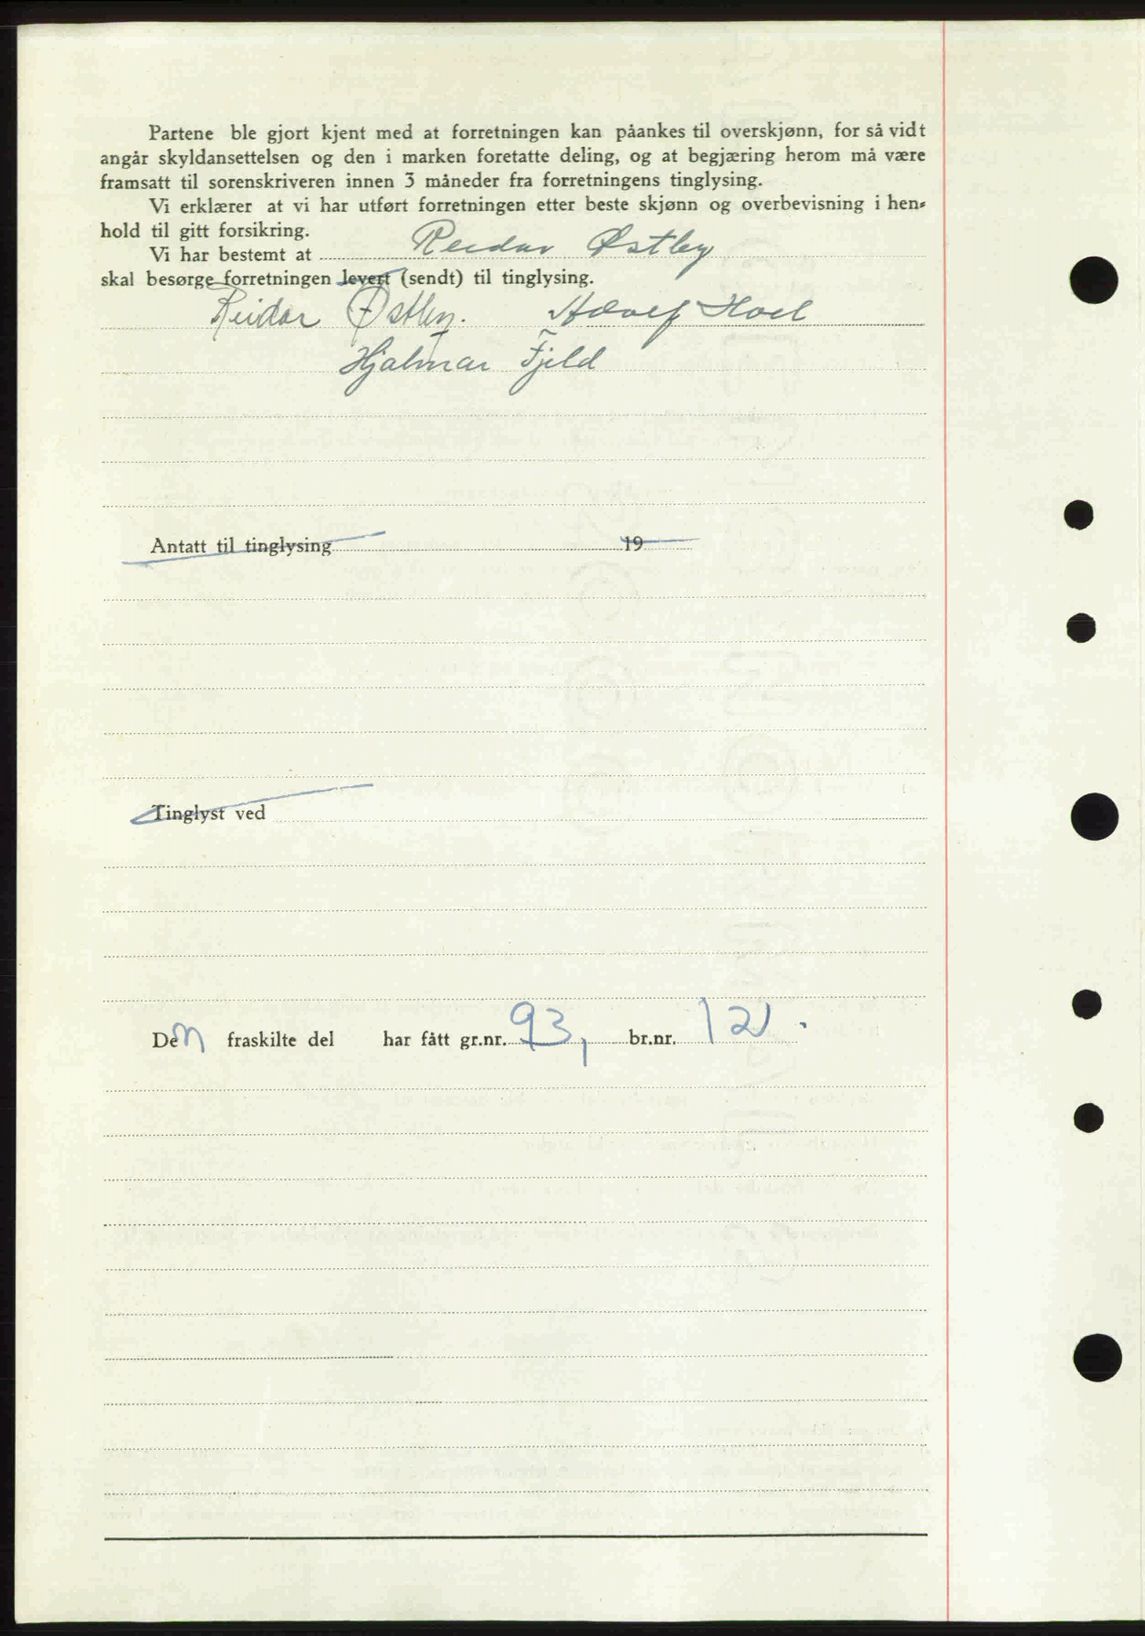 Partene ble gjort kjent med at forretningen kan påankes til overskjønn, for så vidt
angår skyldansettelsen og den i marken foretatte deling, og at begjæring herom må være
framsatt til sorenskriveren innen 3 måneder fra forretningens tinglysing.
Vi erklærer at vi har utført forretningen etter beste skjønn og overbevisning i hen-
hold til gitt forsikring.
Vi har bestemt at Reidar Østby
skal besørge forretningen levert (sendt) til tinglysing.
Reidar Østby. Adolf Hoel
Hjalmar Fjeld
Antatt til tinglysing 19
Tinglyst ved
Den fraskilte del har fått gr.nr. 93, br.nr. 121.